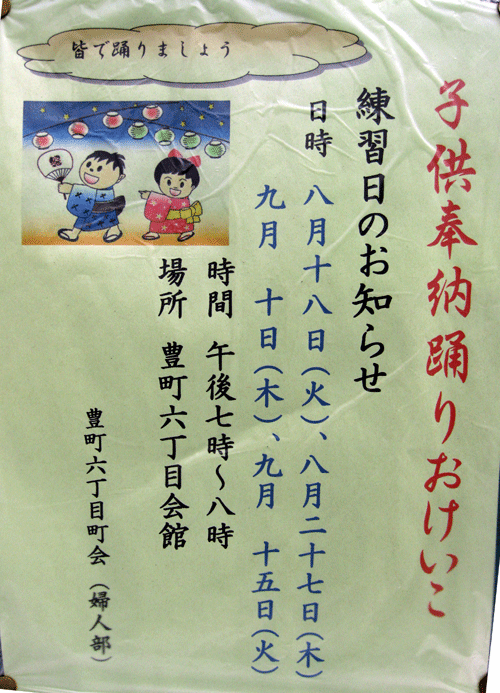 皆で踊りましょう
子供奉納踊りおけいこ
練習日のお知らせ
日時 八月十八日(火)、八月二十七日(木)
九月 十日(木)、九月 十五日(火)
時間 午後七時～八時
場所 豊町六丁目会館
豊町六丁目町会 (婦人部)